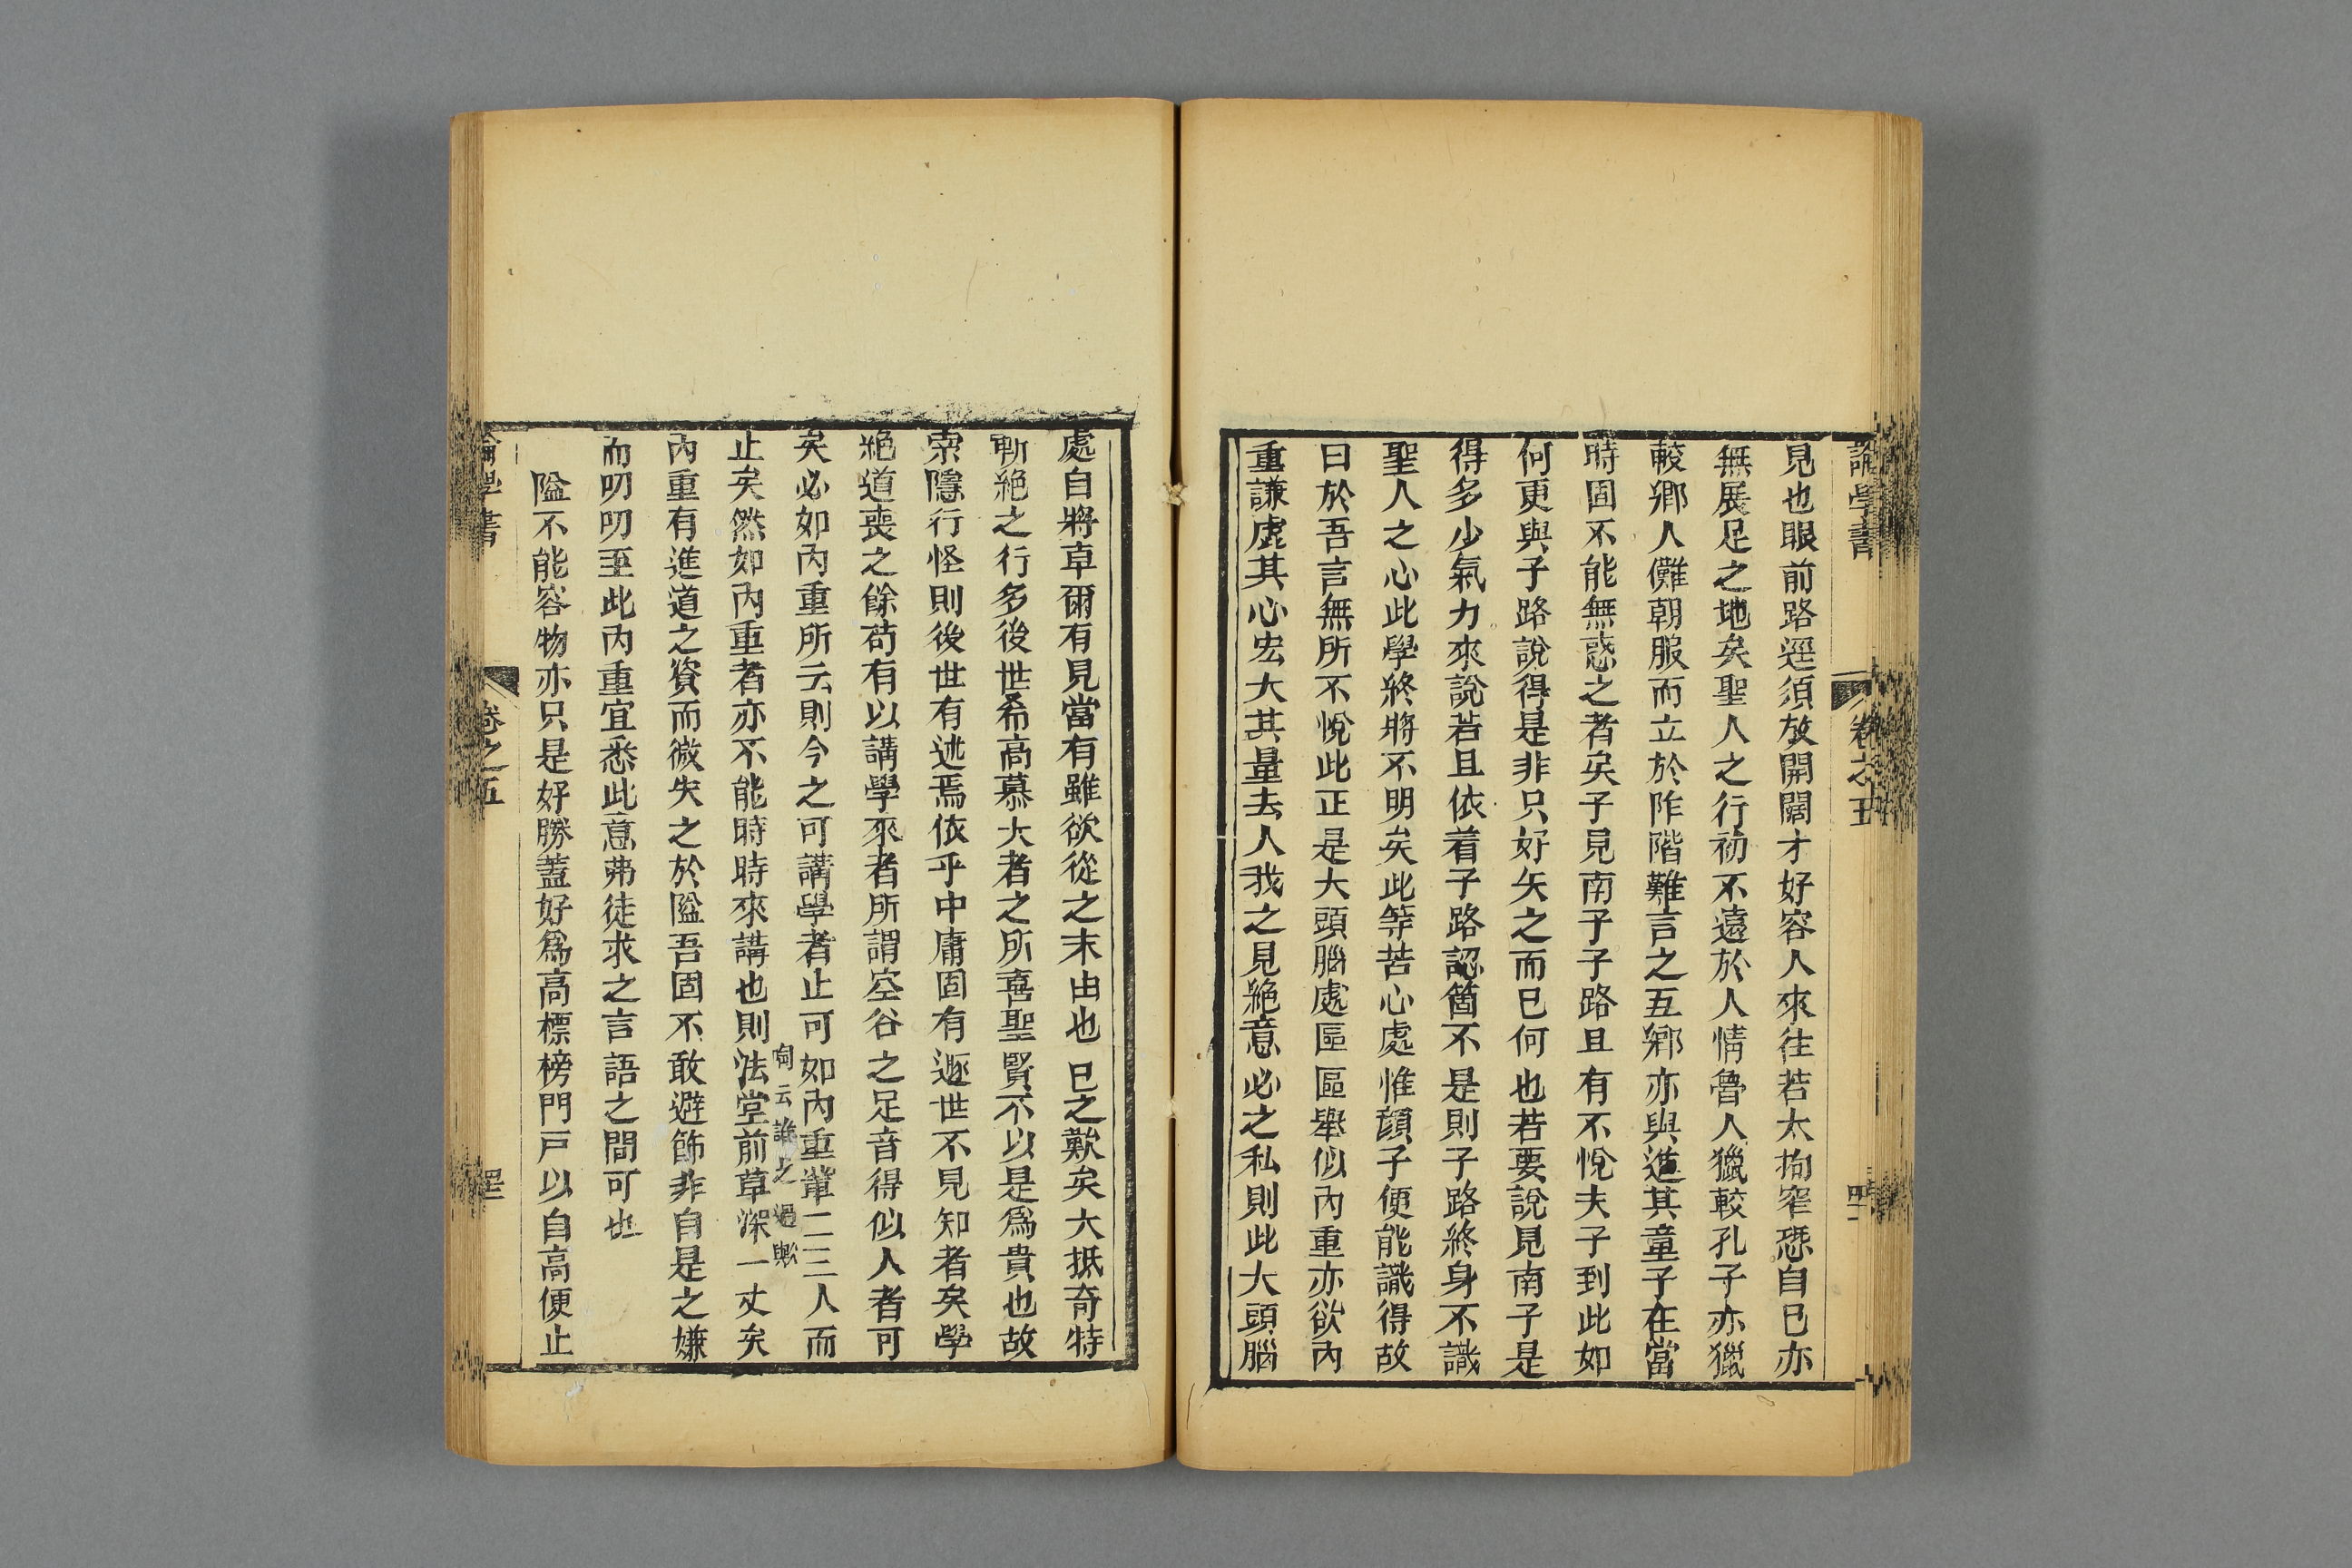 論學書 卷之五
見也眼前路逕須放開闊才好容人來往若太拘窄恐自巳亦
無展足之地矣聖人之行初不遠於人情魯人獵較孔子亦獵
較鄉人儺朝服而立於阼階難言之互鄉亦與進其童子在當
時固不能無惑之者矣子見南子子路且有不悅夫子到此如
何更與子路說得是非只好矢之而巳何也若要說見南子是
得多少氣力來說若且依着子路認箇不是則子路終身不識
聖人之心此學終將不明矣此等苦心處惟顔子便能識得故
曰於吾言無所不悅此正是大頭腦處區區舉似內重亦欲內
重謙虛其心宏大其量去人我之見絕意必之私則此大頭腦
處自將卓爾有見當有雖欲從之末由也巳之歎矣大抵奇特
斬絕之行多後世希高慕大者之所喜聖賢不以是爲貴也故
索隱行怪則後世有述焉依乎中庸固有遯世不見知者矣學
絕道喪之餘苟有以講學來者所謂空谷之足音得似人者可
矣必如內重所云則今之可講學者止可如內重輩二三人而
止矣然如內重者亦不能時時來講也則法堂前草深一丈矣
向云誰之過歟
內重有進道之資而微失之於隘吾固不敢避飾非自是之嫌
而叨叨至此內重宜悉此意弗徒求之言語之間可也
隘不能容物亦只是好勝蓋好爲高標榜門戸以自高便止
論學書 卷之五